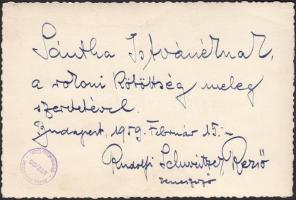 Sántha Istvánénak,
a rokoni kötöttség meleg
szeretetével
Budapest, 1959. Február 15.-
Rudolfi Schweitzer Rezső
zeneszerző